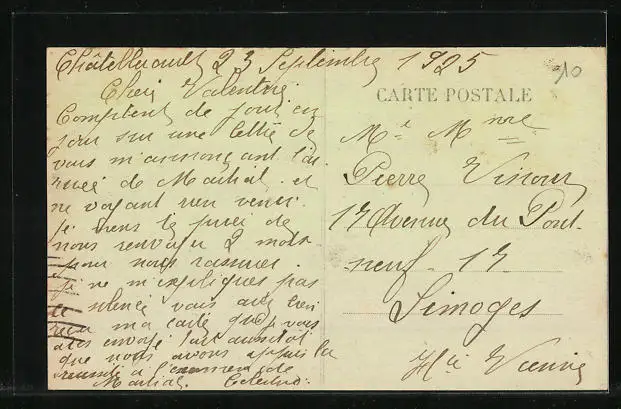 Châtellerault 23 Septembre 1925
Cher Valentin
Comptent de jour en
jour sur une lettre de
vous m'annonçant l'ar
rivée de Martial et
ne voyant rien venir
Je viens te prier de
nous renvoyer 2 mots
pour nous rassurer.
Je ne m'expliques pas
ce silence vous avez bien
reçu ma carte que je vous
ai envoyé sait aussitot
que nous avons appris la
reussite a l'examen de
Martial.
10
CARTE POSTALE
Mr Mme
Pierre
17 Avenue du Pont-
neuf - 17
Limoges
Hte Vienne